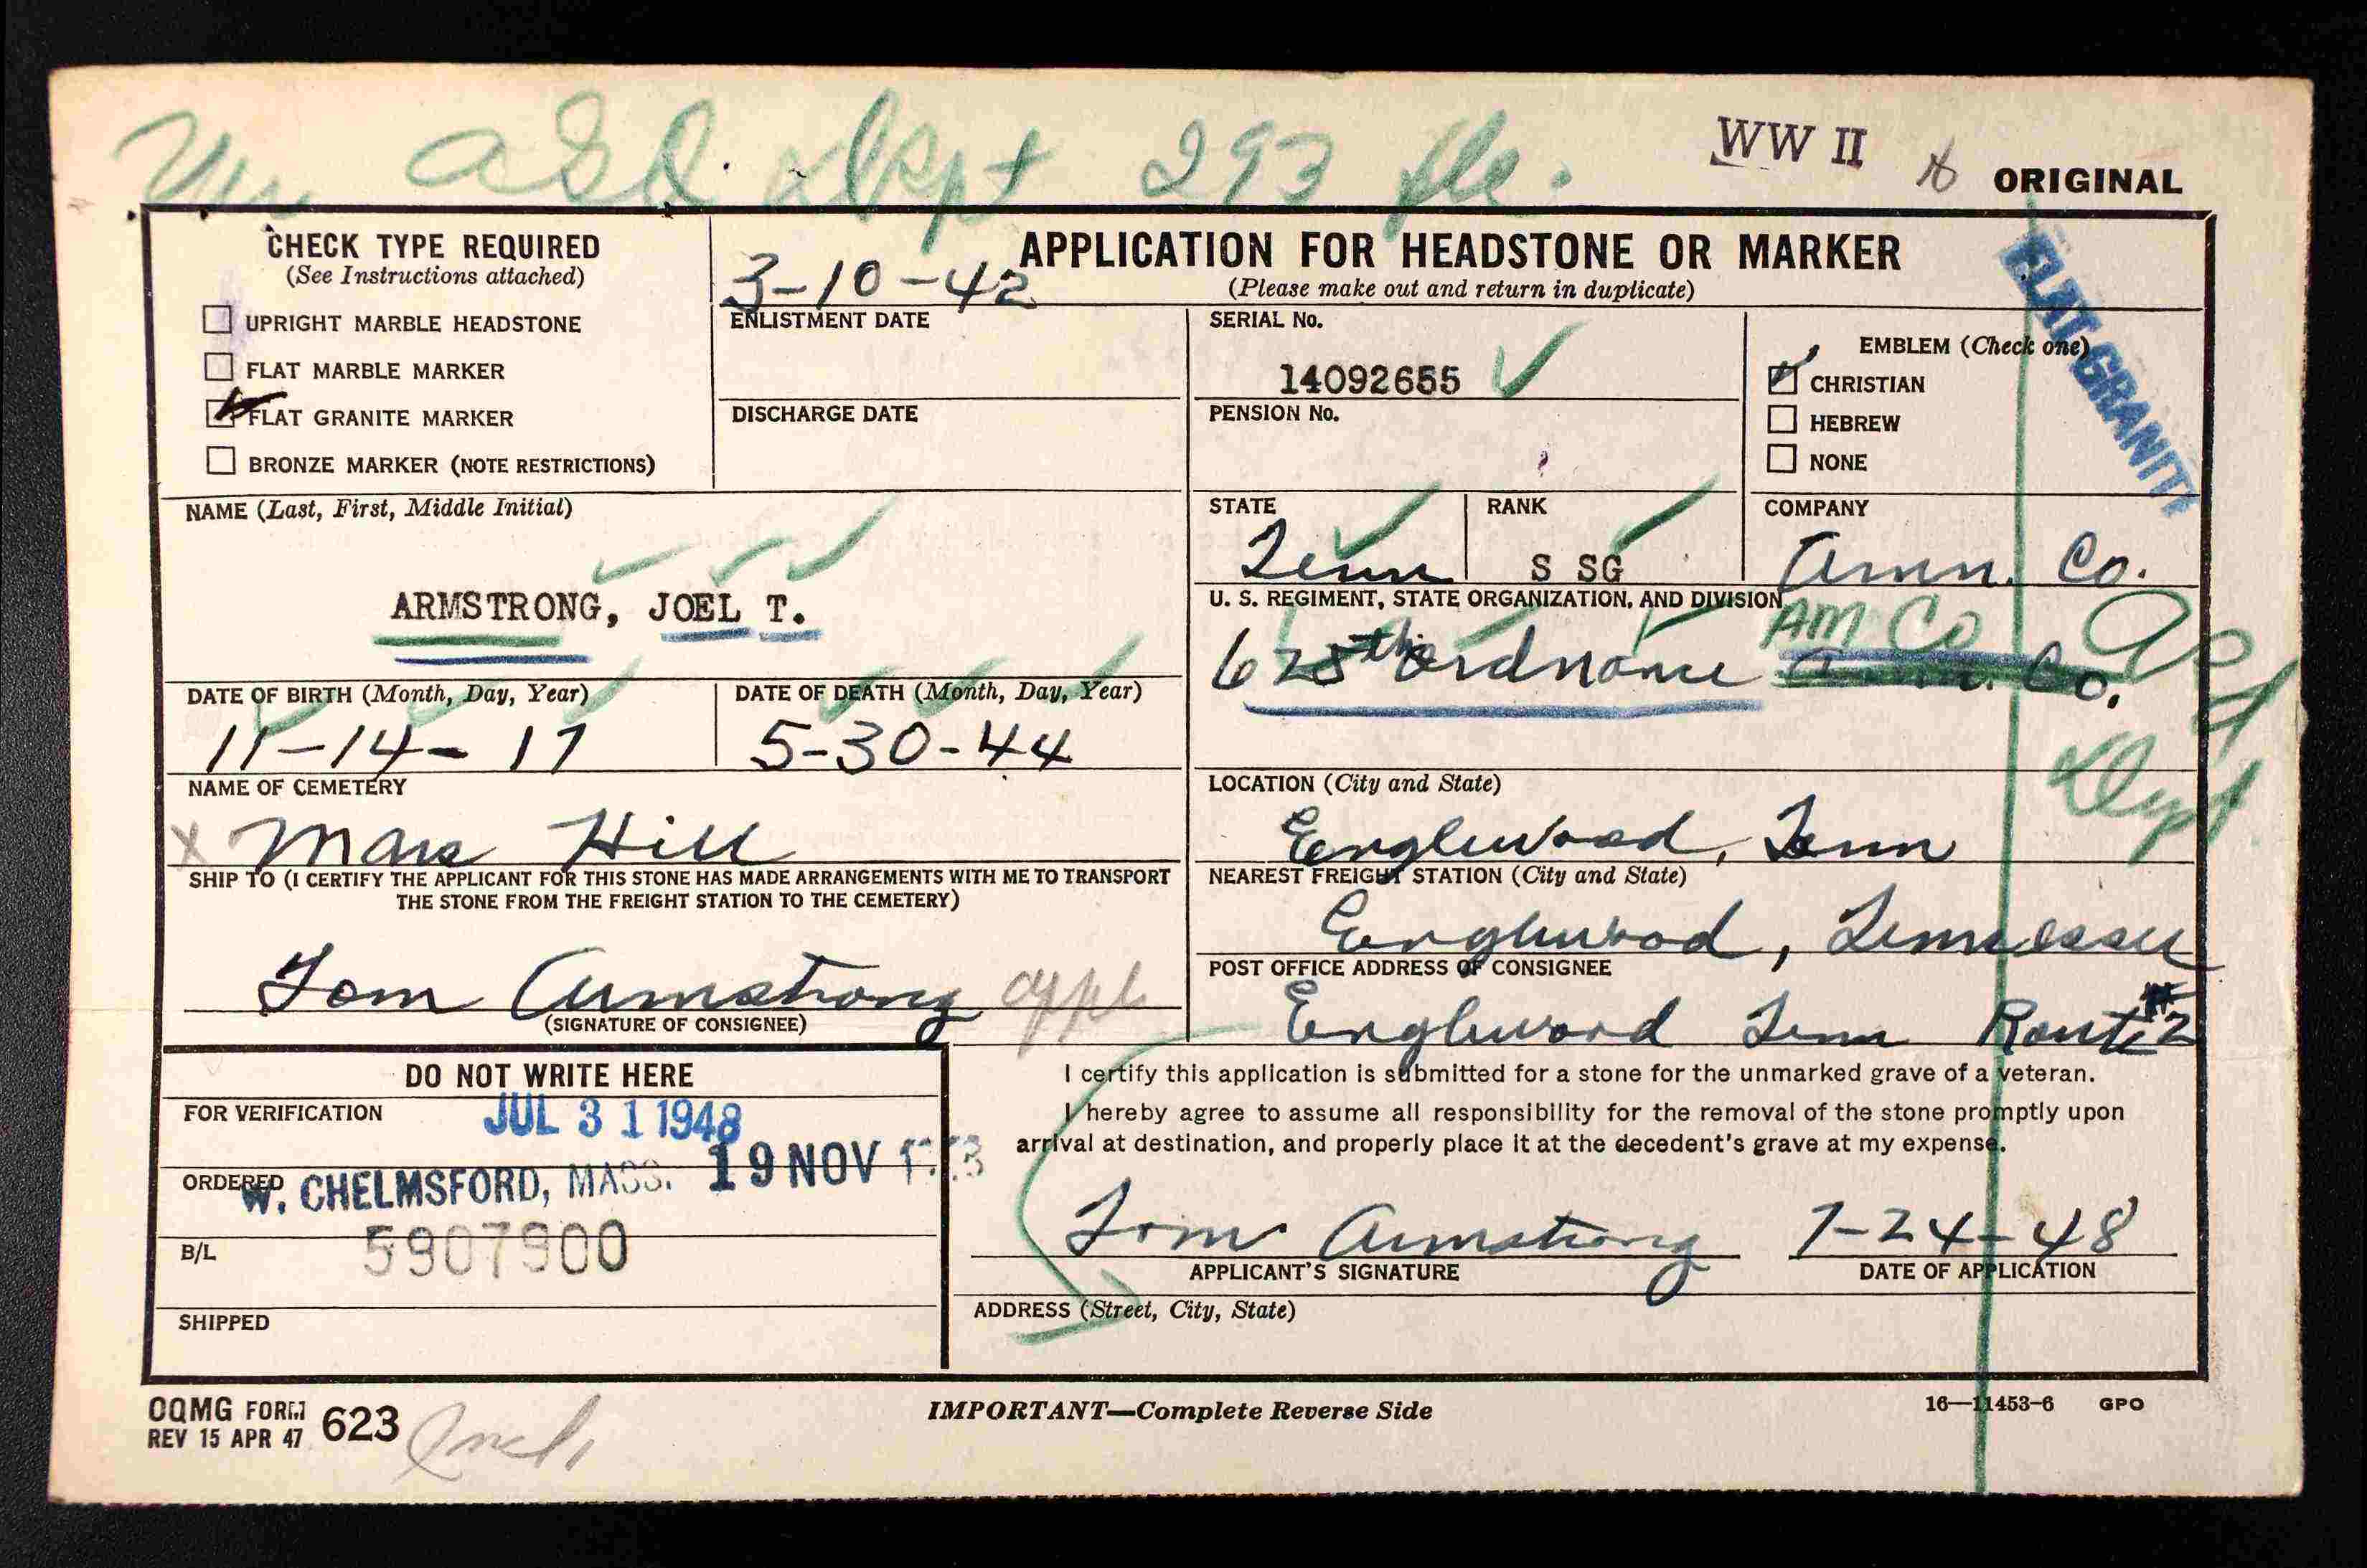 293
WW II
ORIGINAL
CHECK TYPE REQUIRED
(See Instructions attached)
UPRIGHT MARBLE HEADSTONE
FLAT MARBLE MARKER
FLAT GRANITE MARKER
BRONZE MARKER (NOTE RESTRICTIONS)
3-10-42
ENLISTMENT DATE
DISCHARGE DATE
APPLICATION FOR HEADSTONE OR MARKER
(Please make out and return in duplicate)
SERIAL No.
14092655
PENSION No.
EMBLEM (Check one)
CHRISTIAN
HEBREW
NONE
FLAT GRANITE
NAME (Last, First, Middle Initial)
ARMSTRONG, JOEL T.
STATE
Tenn
RANK
S SG
COMPANY
Amn. Co.
U. S. REGIMENT, STATE ORGANIZATION, AND DIVISION
AM CO
625th Ordnance Co.
Dept
DATE OF BIRTH (Month, Day, Year)
11-14-17
DATE OF DEATH (Month, Day, Year)
5-30-44
NAME OF CEMETERY
x Mars Hill
LOCATION (City and State)
Englewood, Tenn
SHIP TO (I CERTIFY THE APPLICANT FOR THIS STONE HAS MADE ARRANGEMENTS WITH ME TO TRANSPORT
THE STONE FROM THE FREIGHT STATION TO THE CEMETERY)
Tom Armstrong appl
(SIGNATURE OF CONSIGNEE)
NEAREST FREIGHT STATION (City and State)
Englewood, Tennessee
POST OFFICE ADDRESS OF CONSIGNEE
Englewood Tenn Route #2
DO NOT WRITE HERE
FOR VERIFICATION
JUL 31 1948
ORDERED
W. CHELMSFORD, MASS. 19 NOV
B/L
5907900
SHIPPED
I certify this application is submitted for a stone for the unmarked grave of a veteran.
I hereby agree to assume all responsibility for the removal of the stone promptly upon
arrival at destination, and properly place it at the decedent's grave at my expense.
Tom Armstrong 7-24-48
APPLICANT'S SIGNATURE
DATE OF APPLICATION
ADDRESS (Street, City, State)
OQMG FORM 623
REV 15 APR 47
IMPORTANT—Complete Reverse Side
16—11453-6 GPO